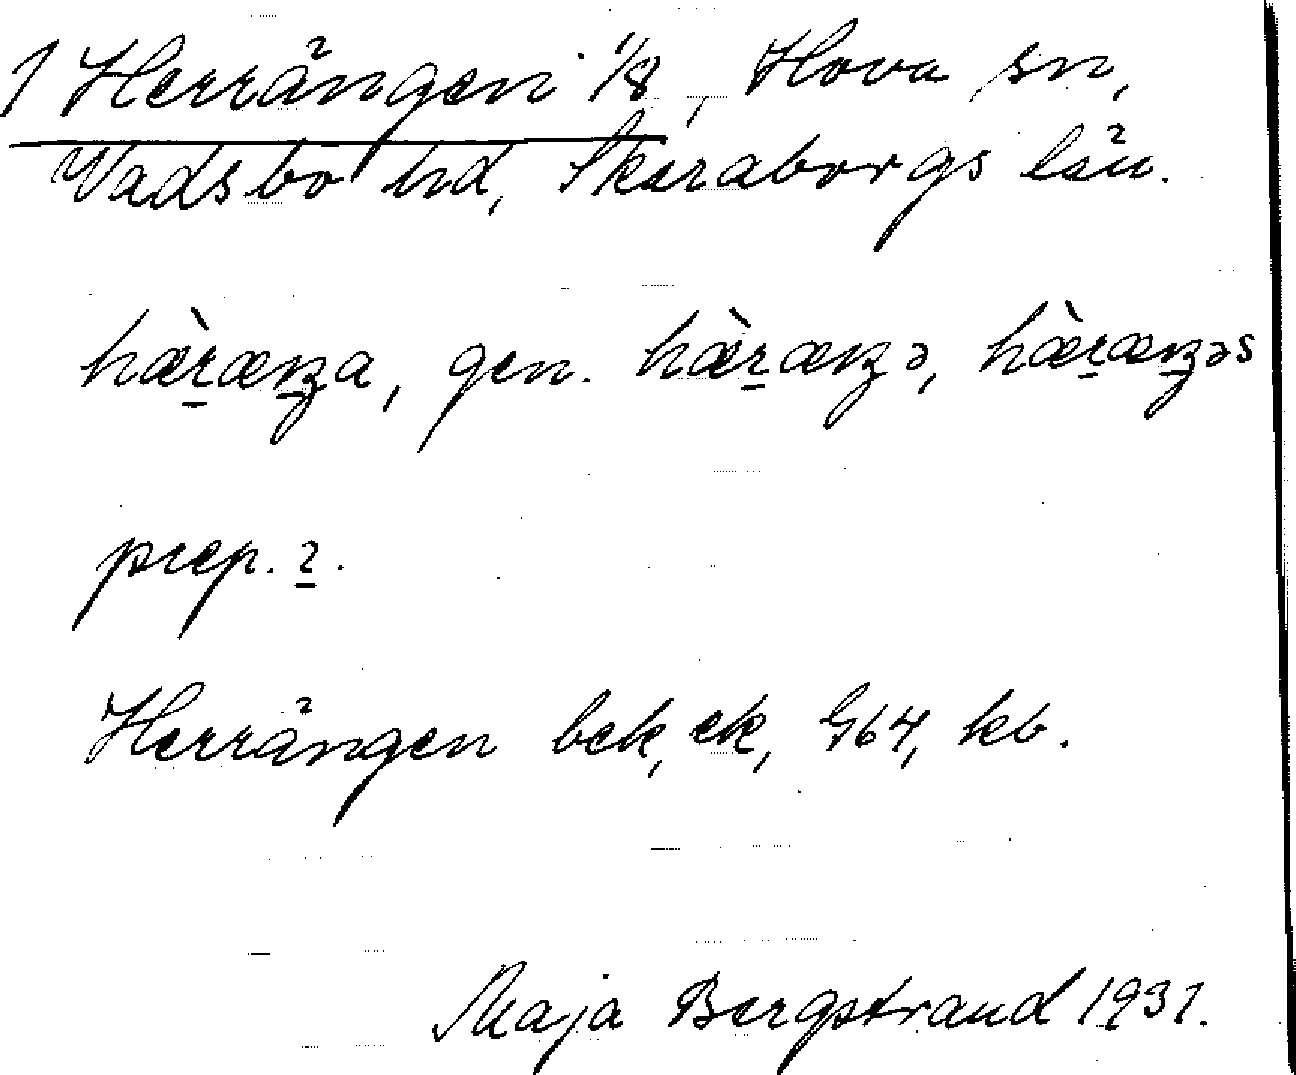 1 Herrängen 1/8, Hova sn,
Vadsbo hd, Skaraborgs län.
hæ̀ṟæŋa, gen. hæ̀ṟæŋə, hæ̀ṟæŋəs
prep. ɩ̱.
Herrängen bek, ek, G64, kb.
Maja Bergstrand 1931.